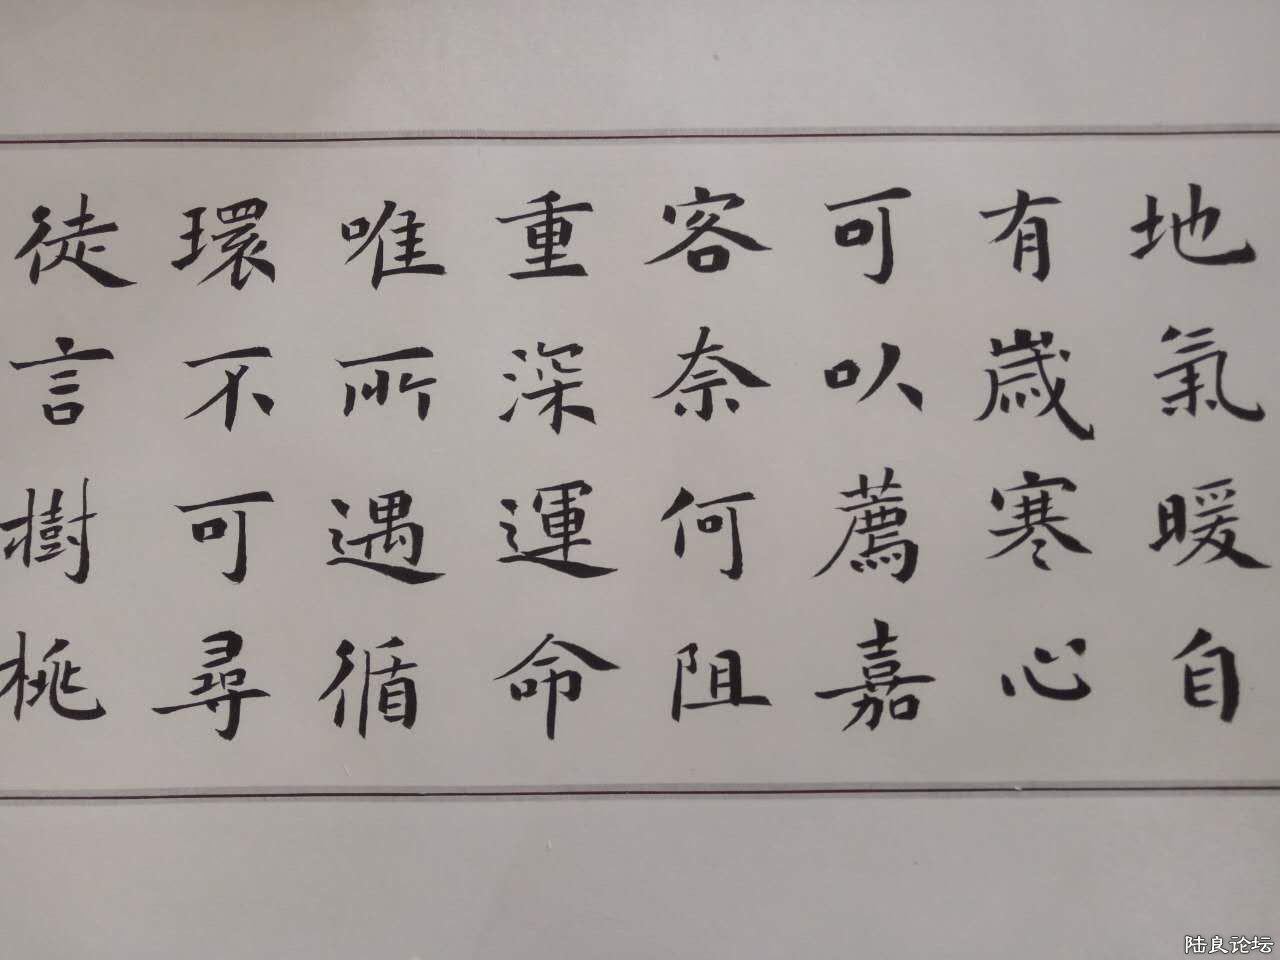 地氣暖自
有歲寒心
可以薦嘉
客奈何阻
重深運命
唯所遇循
環不可尋
徒言樹桃
陆良论坛